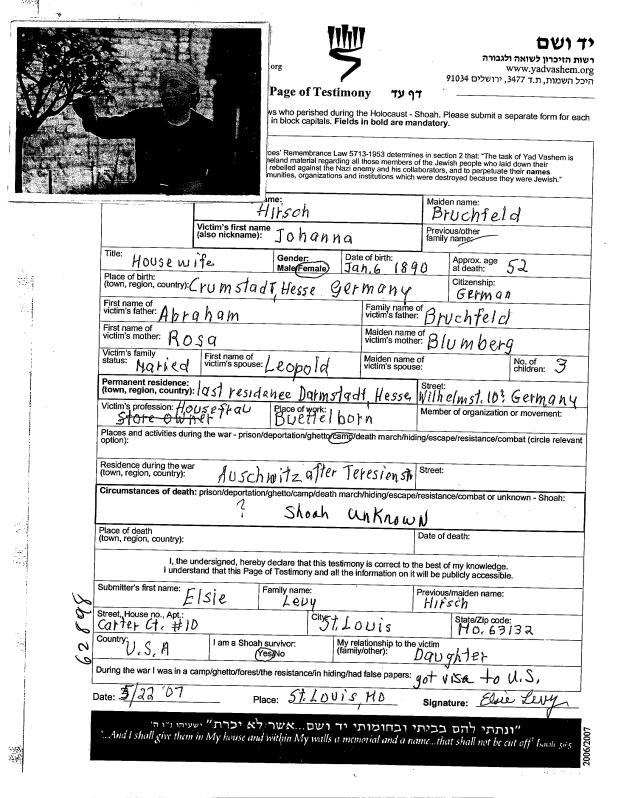 יד ושם
רשות הזיכרון לשואה ולגבורה
www.yadvashem.org
היכל השמות, ת.ד 3477, ירושלים 91034
.org
Page of Testimony דף עד
ws who perished during the Holocaust - Shoah. Please submit a separate form for each
in block capitals. Fields in bold are mandatory.
oes' Remembrance Law 5713-1953 determines in section 2 that: "The task of Yad Vashem is
meland material regarding all those members of the Jewish people who laid down their
rebelled against the Nazi enemy and his collaborators, and to perpetuate their names
mmunities, organizations and institutions which were destroyed because they were Jewish."
ame: Hirsch Maiden name: Bruchfeld
Victim's first name (also nickname): Johanna Previous/other family name:
Title: Housewife Gender: Male/Female Date of birth: Jan. 6 1890 Approx. age at death: 52
Place of birth: (town, region, country): Crumstadt, Hesse Germany Citizenship: German
First name of victim's father: Abraham Family name of victim's father: Bruchfeld
First name of victim's mother: Rosa Maiden name of victim's mother: Blumberg
Victim's family status: Maried First name of victim's spouse: Leopold Maiden name of victim's spouse: No. of children: 3
Permanent residence: (town, region, country): last residence Darmstadt, Hesse Street: Wilhelmst. Germany
Victim's profession: Housefrau Store owner Place of work: Buettelborn Member of organization or movement:
Places and activities during the war - prison/deportation/ghetto/camp/death march/hiding/escape/resistance/combat (circle relevant
option):
Residence during the war (town, region, country): Auschwitz after Teresienst Street:
Circumstances of death: prison/deportation/ghetto/camp/death march/hiding/escape/resistance/combat or unknown - Shoah:
? Shoah Unknown
Place of death (town, region, country): Date of death:
I, the undersigned, hereby declare that this testimony is correct to the best of my knowledge.
I understand that this Page of Testimony and all the information on it will be publicly accessible.
Submitter's first name: Elsie Family name: Levy Previous/maiden name: Hirsch
Street, House no., Apt.: Carter Ct. #1D City: St. Louis State/Zip code: Mo. 63132
Country: U.S.A I am a Shoah survivor: Yes/No My relationship to the victim (family/other): Daughter
During the war I was in a camp/ghetto/forest/the resistance/in hiding/had false papers: got visa to U.S.
Date: 5/22 '07 Place: St. Louis, MO Signature: Elsie Levy
"ונתתי להם בביתי ובחומותי יד ושם...אשר לא יכרת" ישעיהו נ"ו ה'
"...And I shall give them in My house and within My walls a memorial and a name...that shall not be cut off" Isaiah 56:5
62898
2006/2007